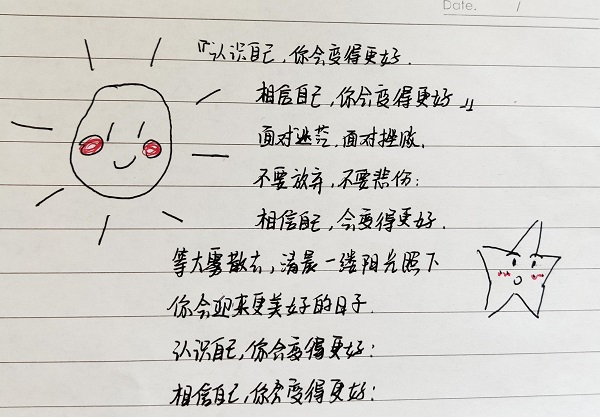 Date. /
『认识自己，你会变得更好.
相信自己，你会变得更好』
面对迷茫，面对挫败.
不要放弃，不要悲伤;
相信自己，会变得更好.
等大雾散去，清晨一缕阳光照下
你会迎来更美好的日子.
认识自己，你会变得更好;
相信自己，你会变得更好;